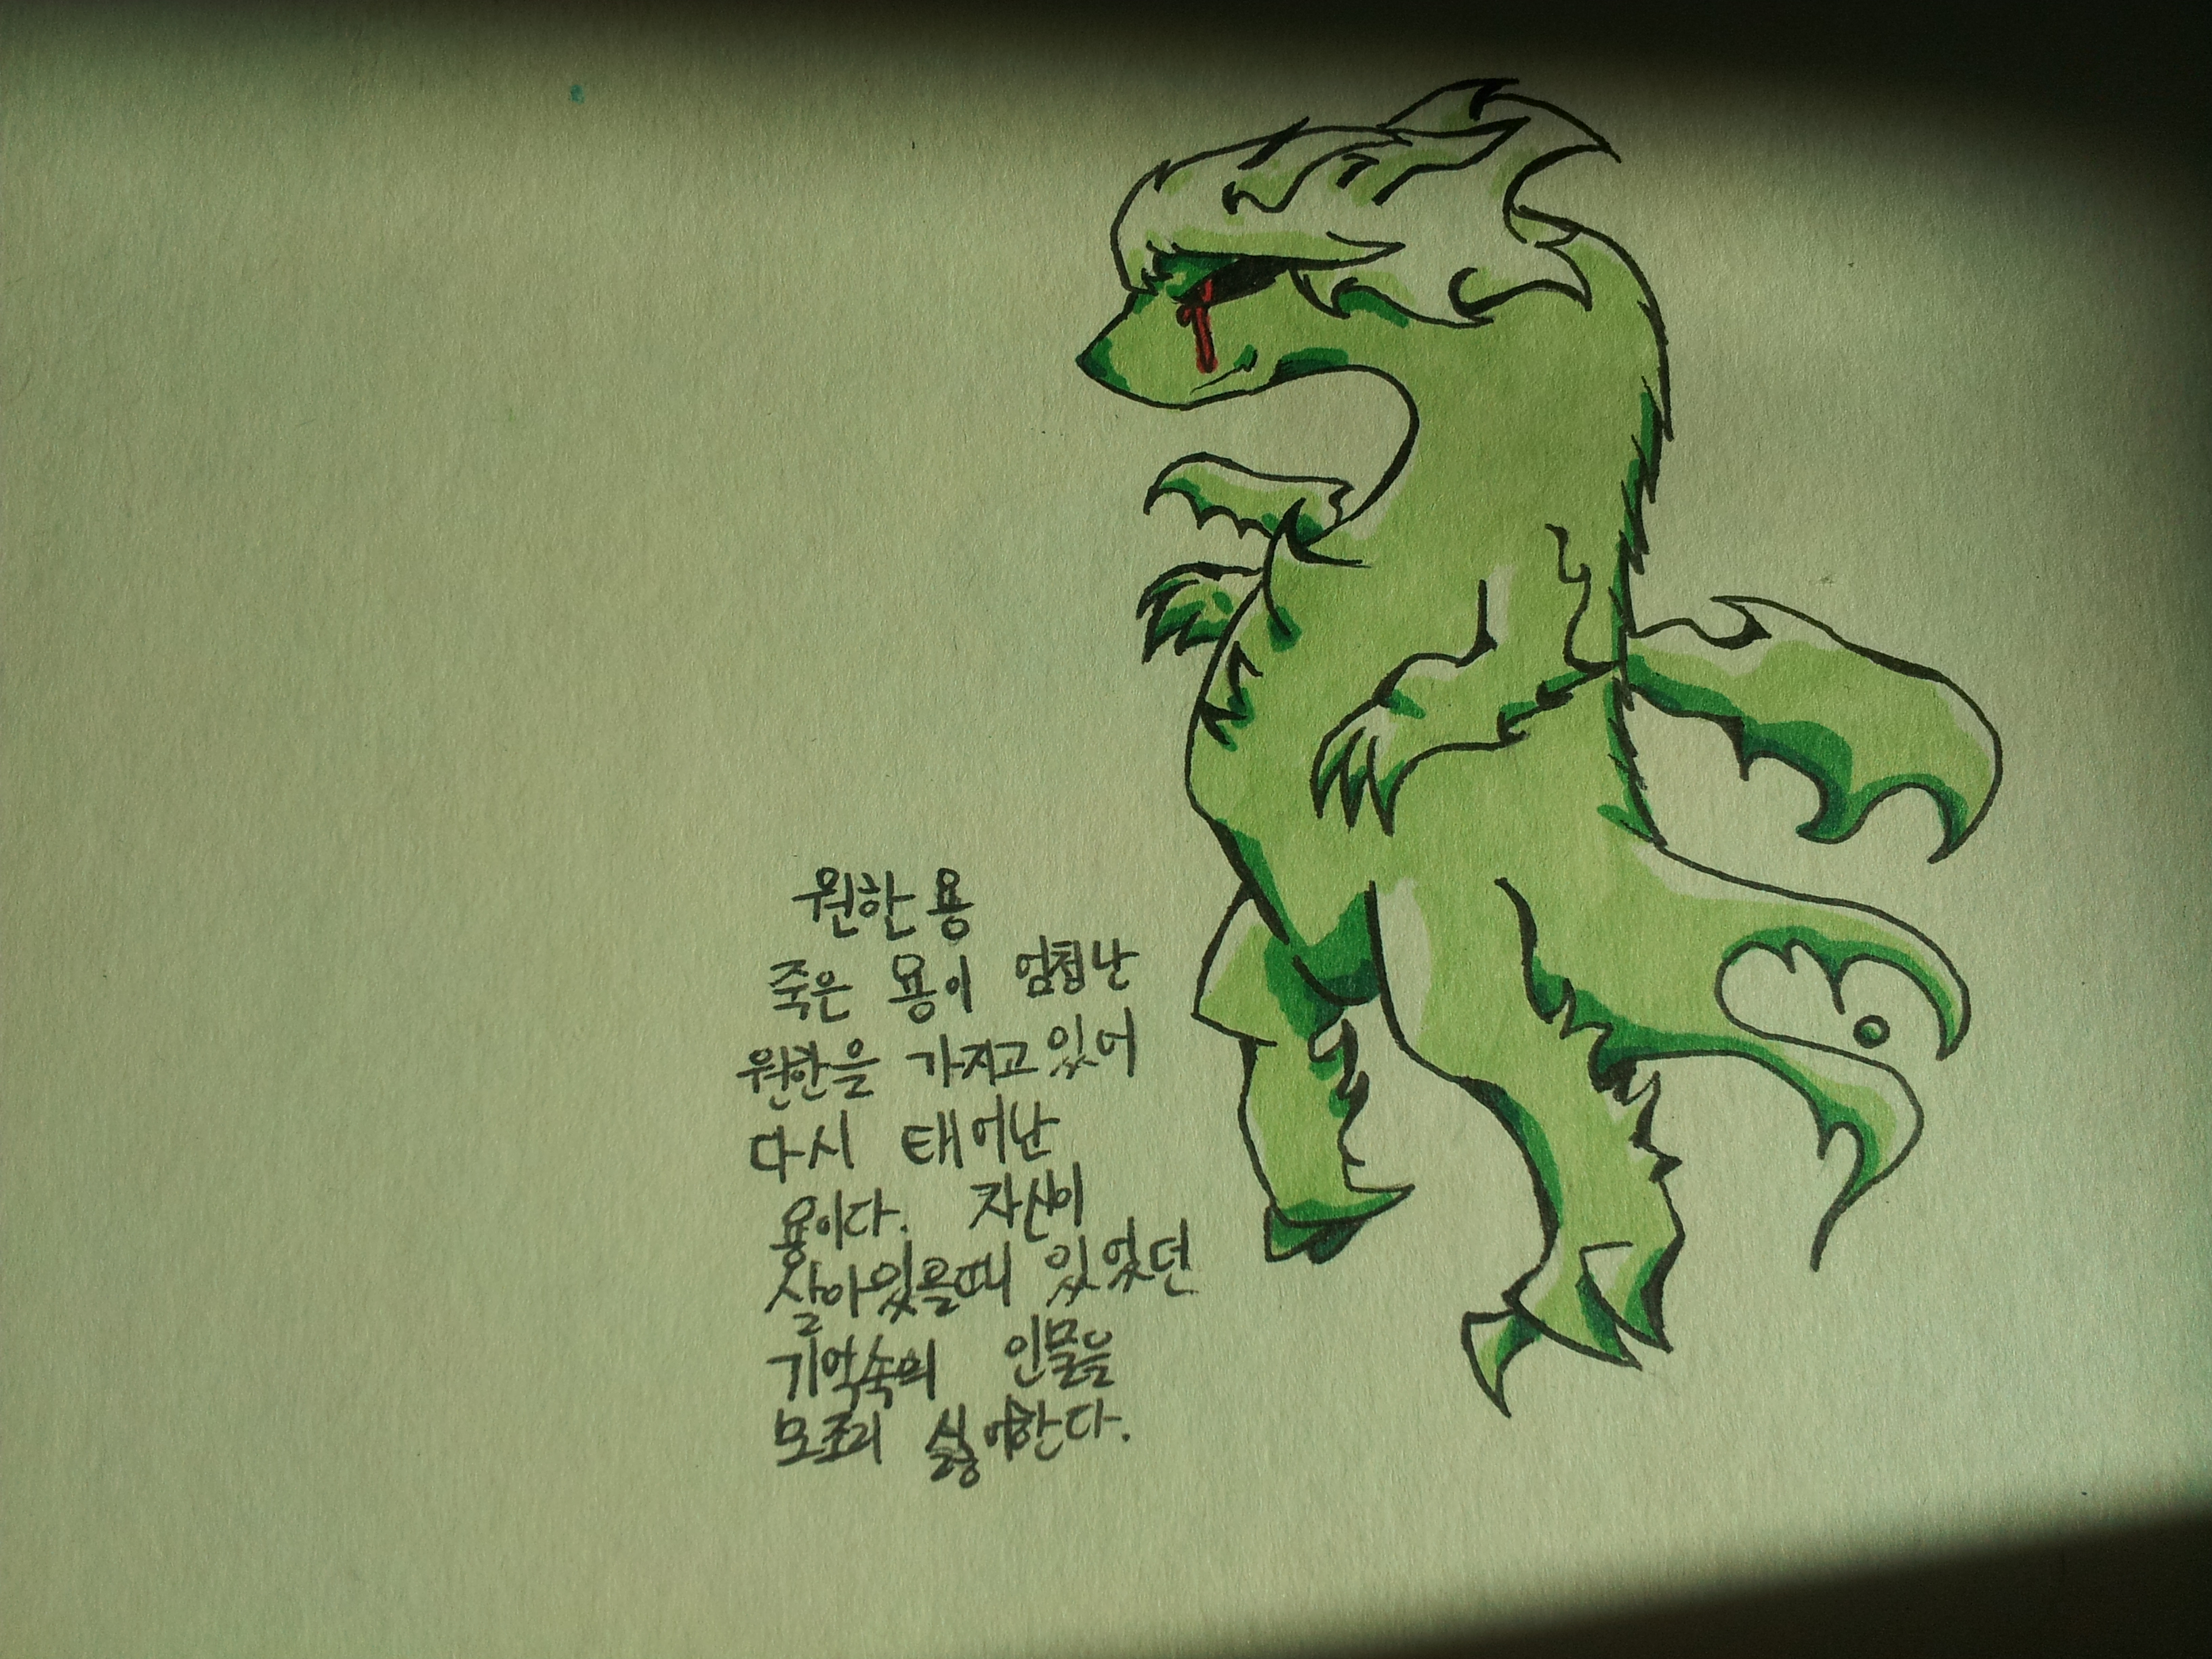 원한 용
죽은 용이 엄청난
원한을 가지고 있어
다시 태어난
용이다. 자신이
살아있을때 있었던
기억속의 인물을
모조리 싫어한다.